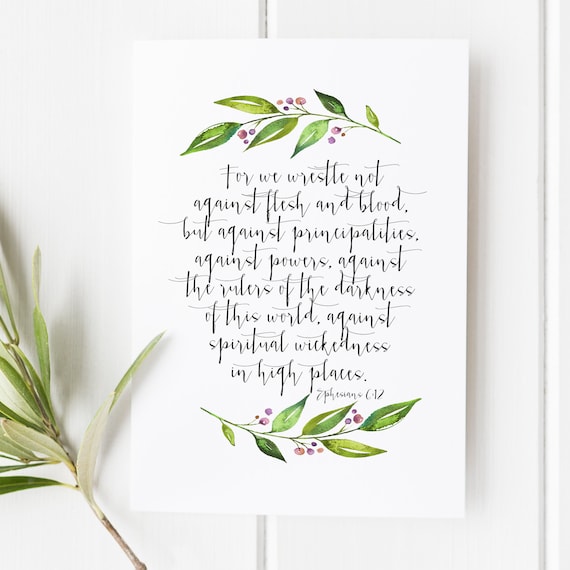 For we wrestle not
against flesh and blood,
but against principalities,
against powers, against
the rulers of the darkness
of this world, against
spiritual wickedness
in high places.
Ephesians 6:12